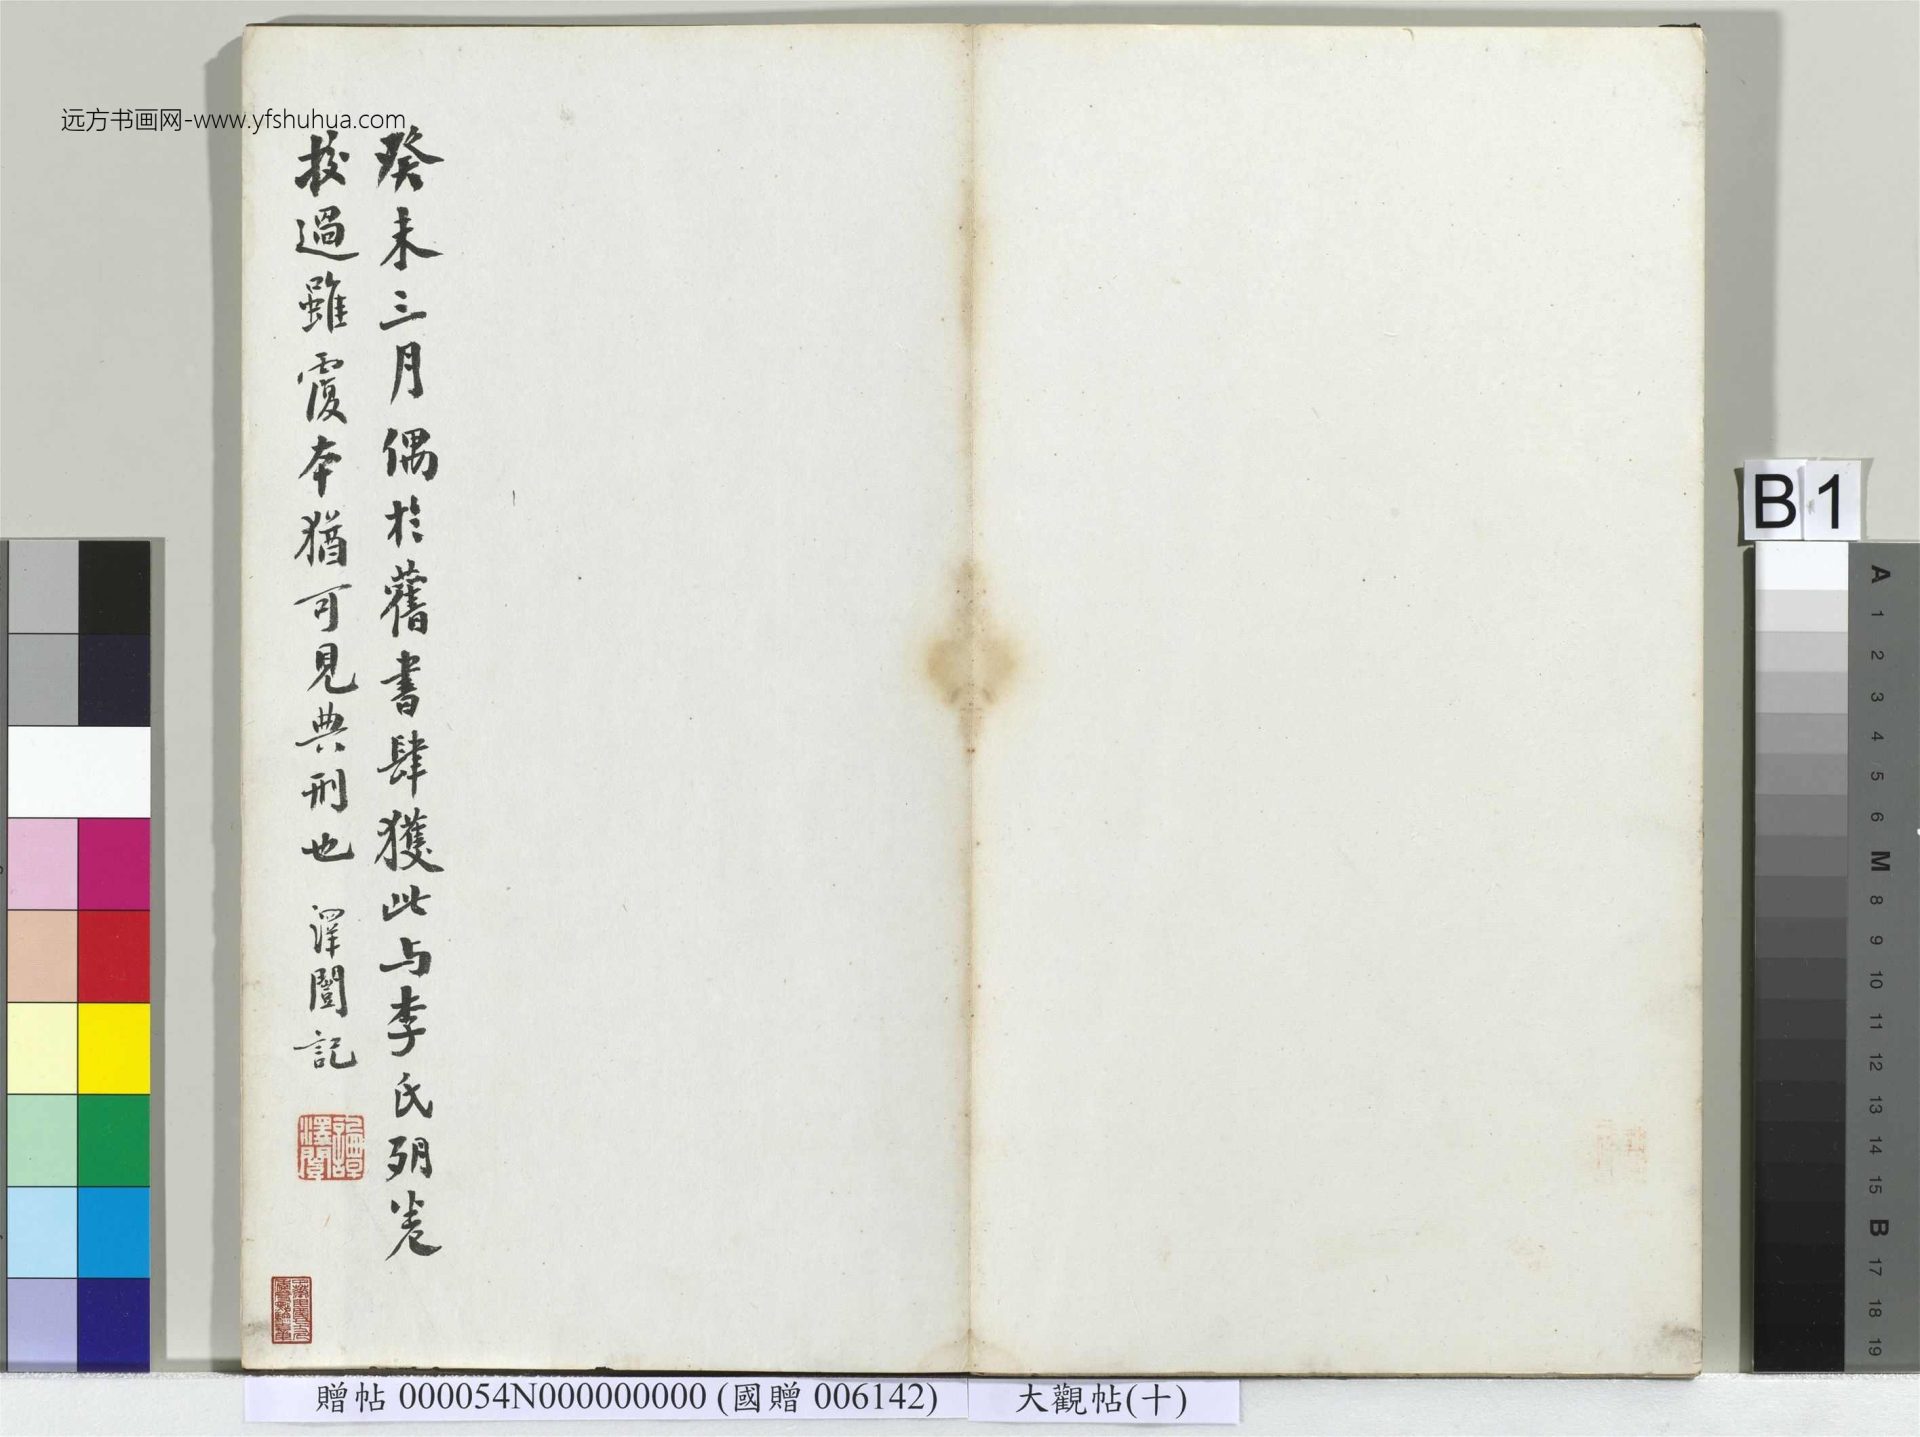 远方书画网-www.yfshuhua.com
癸未三月偶於舊書肆獲此与李氏殘卷
校過雖覆本猶可見典刑也 澤闓記
B1
A
1
2
3
4
5
6
M
8
9
10
11
12
13
14
15
B
17
18
19
贈帖 000054N000000000 (國贈 006142)
大觀帖(十)